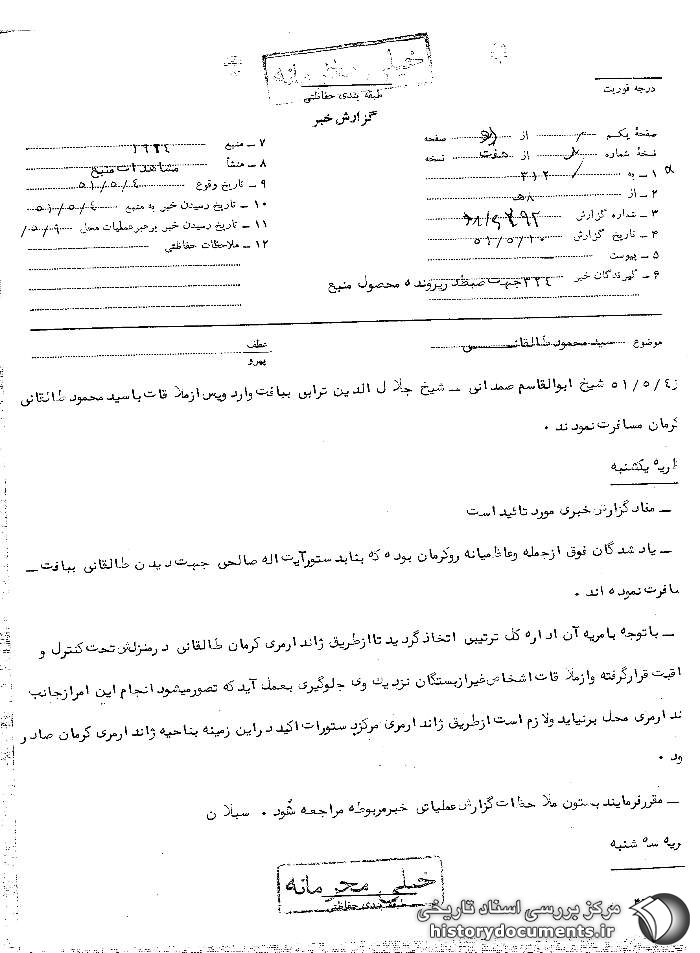 خیلی محرمانه
طبقه بندی حفاظتی
گزارش خبر
درجه فوریت
صفحهٔ یکم از صفحه
نسخهٔ شماره از هفت نسخه
۱ ـ به ۳۱۲
۲ ـ از ۸ه
۳ ـ شماره گزارش
۴ ـ تاریخ گزارش ۵۱/۵/۱۰
۵ ـ پیوست
۶ ـ گیرندگان خبر ۳۳٤ جهت ضبط در پرونده محصول منبع
۷ ـ منبع ۱۹۳٤
۸ ـ منشأ مشاهدات منبع
۹ ـ تاریخ وقوع ۵۱/۵/٤
۱۰ ـ تاریخ رسیدن خبر به منبع ۵۱/۵/٤
۱۱ ـ تاریخ رسیدن خبر برهبر عملیات محل ۵/۹/
۱۲ ـ ملاحظات حفاظتی
موضوع سید محمود طالقانی
عطف
پیرو
ز ۵۱/۵/٤ شیخ ابوالقاسم صمدانی ـ شیخ جلال الدین ترابی ببافت وارد و پس از ملاقات با سید محمود طالقانی
کرمان مسافرت نمودند ۰
ریه یکشنبه
ـ مفاد گزارش خبری مورد تائید است
ـ یاد شدگان فوق از جمله وعاظ میانه رو کرمان بوده که بنا بدستور آیت اله صالحی جهت دیدن طالقانی ببافت ـ
سافرت نموده اند ۰
ـ با توجه بامریه آن اداره کل ترتیبی اتخاذ گردید تا از طریق ژاندارمری کرمان طالقانی در منزلش تحت کنترل و
اقبت قرار گرفته و از ملاقات اشخاص غیر از بستگان نزدیك وی جلوگیری بعمل آید که تصور میشود انجام این امر از جانب
ندارمری محل برنیاید و لازم است از طریق ژاندارمری مرکز دستورات اکید در این زمینه بناحیه ژاندارمری کرمان صادر
ود ۰
ـ مقرر فرمایند بستون ملاحظات گزارش عملیاتی خبر مربوطه مراجعه شود ۰ سبلان
ریه سه شنبه
خیلی محرمانه
طبقه بندی حفاظتی
مرکز بررسی اسناد تاریخی
historydocuments.ir